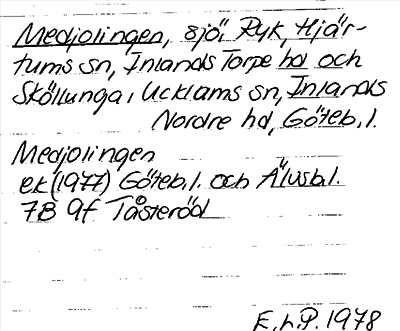 Medjolingen, sjö i Ryk, Hjär-
tums sn, Inlands Torpe hd och
Sköllunga i Ucklums sn, Inlands
Nordre hd, Göteb. l.
Medjolingen
ek (1977) Göteb. l. och Älvsb. l.
7B 9f Tåsteröd
E.h.P. 1978